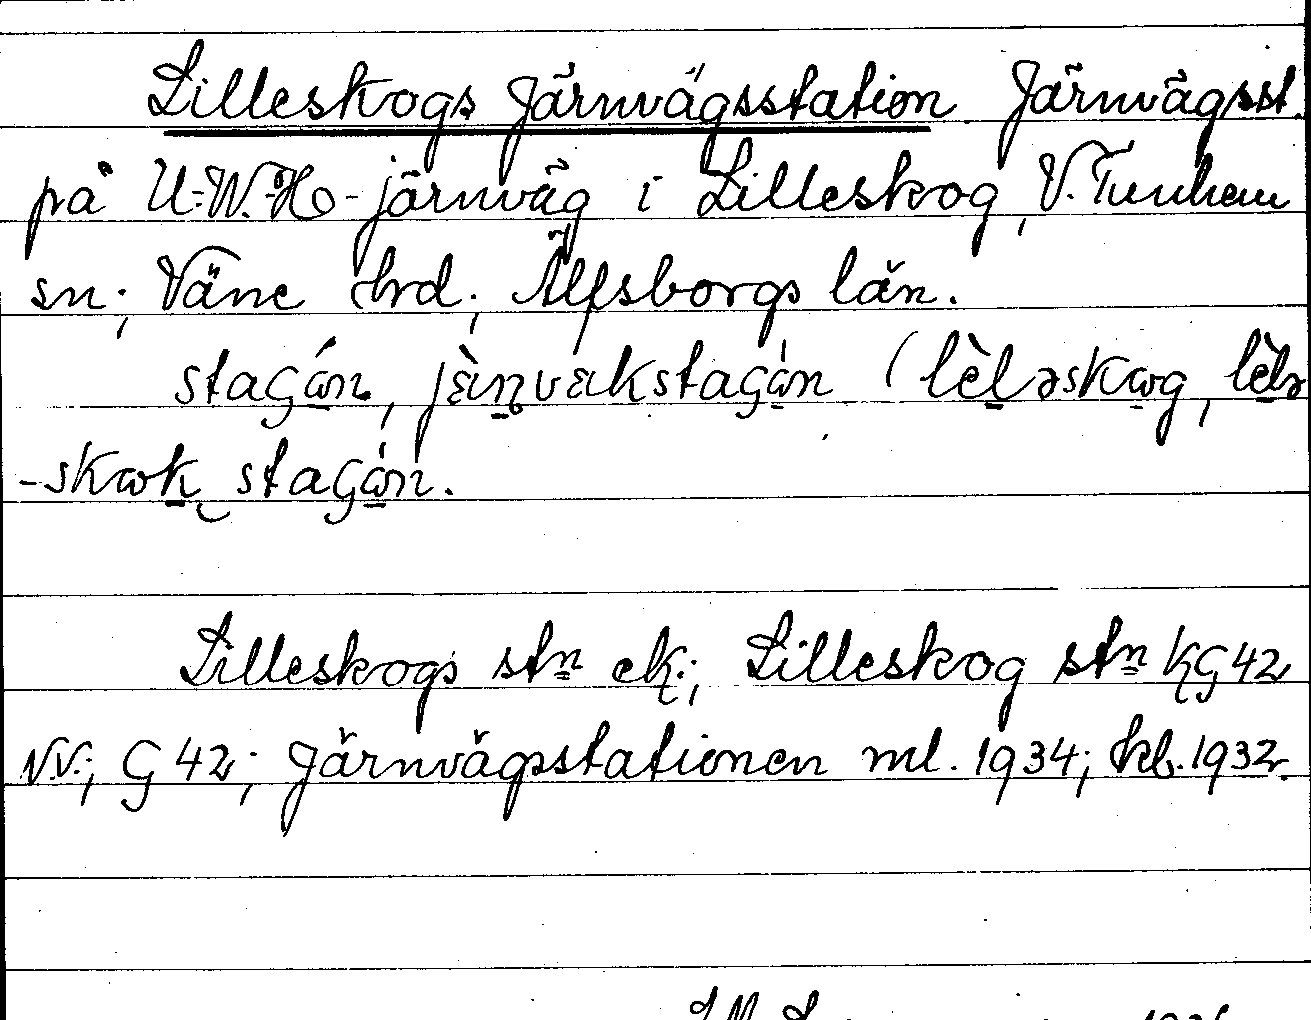 Lilleskogs Järnvägsstation. Järnvägsst.
på U.-W.-H.-järnväg i Lilleskog, V. Tunhem
sn; Väne hrd; Älfsborgs län.
staɢán, jæ̀ɳvækstaɢán (lèləskog, lèlə
-skok staɢán.
Lilleskogs stn ek.; Lilleskog stn KG 42
N.V.; G 42; Järnvägsstationen ml. 1934; kb. 1932.